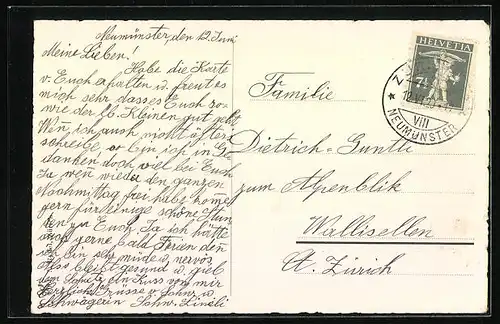 Neumünster, den 12. Juni
Meine Lieben!
Habe die Karte
v. Euch erhalten u. freut es
mich sehr dass es Euch so-
wie der lb. Kleinen gut geht
Wen ich auch nicht öfters
schreibe, so bin ich in Ge-
danken doch viel bei Euch
Ja wen wieder den ganzen
Nachmittag frei habe komme
gern für einige schöne Stun-
den zu Euch. Ja ich hätte
auch gerne bald Ferien den
ich bin sehr müde u. nervös
bleibt gesund u. gieb
dem Schatz ein Kuss von mir
Herzliche Grüsse v. u.
Schwägerin
Familie
Dietrich-
zum Alpenblik
Wallisellen
Kt. Zürich
HELVETIA
VIII
NEUMÜNSTER